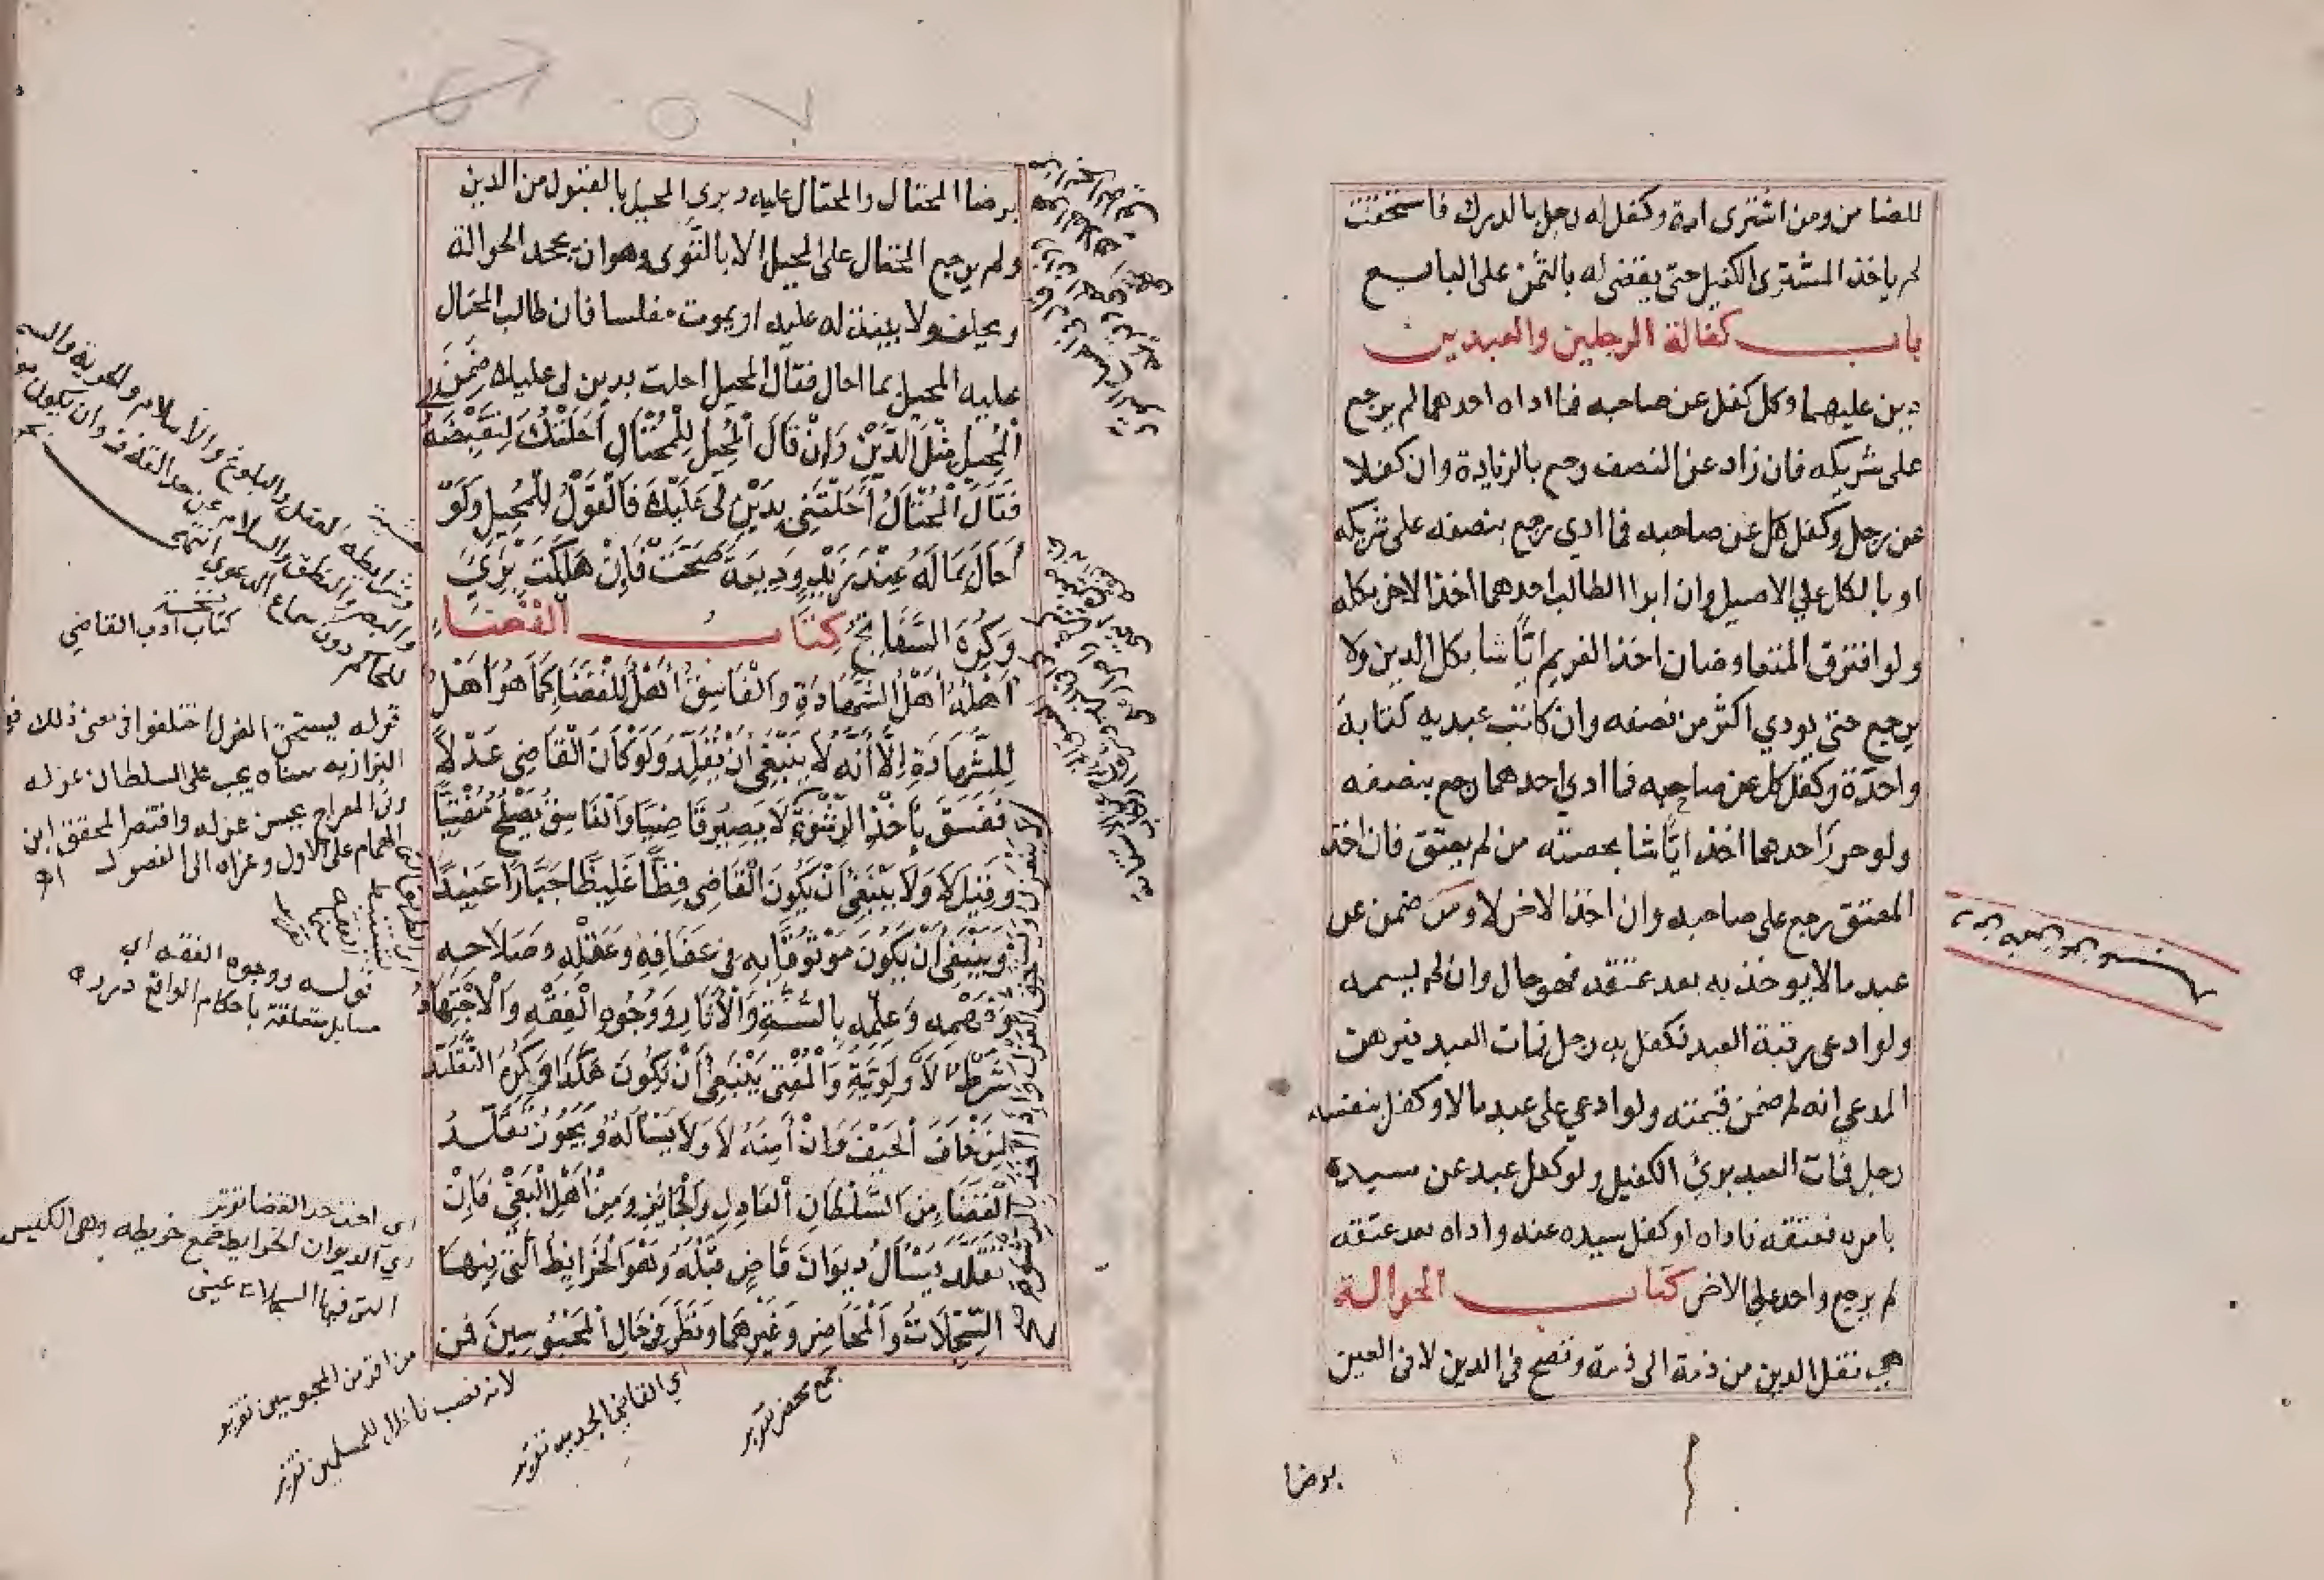 للضامن ومن اشترى امة وكفل له رجل بالدرك فاستحقت
لم ياخذ المشترى الكفيل حتى يقضى له بالثمن على البايع
باب كفالة الرجلين والعبدين
دين عليهما وكل كفل عن صاحبه فما اداه احدهما لم يرجع
على شريكه فان زاد عن النصف رجع بالزيادة وان كفلا
عن رجل وكفل كل عن صاحبه فما ادي رجع بنصفه على شريكه
او بالكل علي الاصيل وان ابرا الطالب احدهما اخذ الاخر بكله
ولو افترق المتفاوضان اخذ الغريم ايّا شا بكل الدين ولا
يرجع حتى يودي اكثر من نصفه وان كاتب عبديه كتابة
واحدة وكفل كل عن صاحبه فما ادي احدهما رجع بنصفه
ولو حرر احدهما اخذ ايّا شا بحصته من لم يعتق فان اخذ
المعتق رجع على صاحبه وان اخذ الاخر لا ومن ضمن عن
عبد مالا يوخذ به بعد عتقه فهو حال وان لم يسمه
ولو ادعى رقبة العبد فكفل به رجل فمات العبد فبرهن
المدعى انه له ضمن قيمته ولو ادعي على عبد مالا وكفل بنفسه
رجل فمات العبد برئ الكفيل ولو كفل عبد عن سيده
بامره فعتقه فاداه او كفل سيده عنه واداه بعد عتقه
لم يرجع واحد علي الاخر كتاب الحوالة
هي نقل الدين من ذمة الى ذمة وتصح فى الدين لا فى العين
برضا
برضا المحتال والمحتال عليه وبرى المحيل بالقبول من الدين
ولم يرجع المحتال على المحيل الا بالتَّوى وهو ان يجحد الحوالة
ويحلف ولا بينة له عليه او يموت مفلسا فان طالب المحتال
عليه المحيل بما احال فقال المحيل احلت بدين لى عليك ضَمِنَ
الْمُحِيلُ مِثْلَ الدَّيْنِ وَإِنْ قَالَ الْمُحِيلُ لِلْمُحْتَالِ أَحَلْتُكَ لِتَقْبِضَهُ
فَقَالَ الْمُحْتَالُ أَحَلْتَنِي بِدَيْنٍ لِي عَلَيْكَ فَالْقَوْلُ لِلْمُحِيلِ وَلَوْ
أَحَالَ بِمَا لَهُ عِنْدَ زَيْدٍ وَدِيعَةً صَحَّتْ فَإِنْ هَلَكَتْ بَرِئَ
وَكُرِهَ السَّفَاتِجُ كِتَابُ الْقَضَاءِ
أَهْلُهُ أَهْلُ الشَّهَادَةِ وَالْفَاسِقُ أَهْلٌ لِلْقَضَا كَمَا هُوَ أَهْلٌ
لِلشَّهَادَةِ إِلَّا أَنَّهُ لَا يَنْبَغِي أَنْ يُقَلَّدَ وَلَوْ كَانَ الْقَاضِي عَدْلًا
فَفَسَقَ بِأَخْذِ الرِّشْوَةِ لَا يَصِيرُ قَاضِيًا وَالْفَاسِقُ يَصْلُحُ مُفْتِيًا
وَقِيلَ لَا وَلَا يَنْبَغِي أَنْ يَكُونَ الْقَاضِي فَظًّا غَلِيظًا جَبَّارًا عَنِيدًا
وَيَنْبَغِي أَنْ يَكُونَ مَوْثُوقًا بِهِ فِي عَفَافِهِ وَعَقْلِهِ وَصَلَاحِهِ
وَفَهْمِهِ وَعِلْمِهِ بِالسُّنَّةِ وَالْآثَارِ وَوُجُوهِ الْفِقْهِ وَالْاجْتِهَادُ
شَرْطُ الْأَوْلَوِيَّةِ وَالْمُفْتِي يَنْبَغِي أَنْ يَكُونَ هَكَذَا وَكُرِهَ التَّقَلُّدُ
لِمَنْ خَافَ الْحَيْفَ وَإِنْ أَمِنَهُ لَا وَلَا يَسْأَلُهُ وَيَجُوزُ تَقَلُّدُ
الْقَضَا مِنَ السُّلْطَانِ الْعَادِلِ وَالْجَائِرِ وَمِنْ أَهْلِ الْبَغْيِ فَإِنْ
تَقَلَّدَ يَسْأَلُ دِيوَانَ قَاضٍ قَبْلَهُ وَهُوَ الْخَرَائِطُ الَّتِي فِيهَا
السِّجِلَّاتُ وَالْمَحَاضِرُ وَغَيْرُهُمَا وَنَظَرَ فِي حَالِ الْمَحْبُوسِينَ فَمَنْ
وشرايطه العقل والبلوغ والاسلام والحرية والسمع
والبصر والنطق والسلامة عن حد القذف وان يكون
للحاكم دون سماع الدعوي انتهى
نسخة
كتاب ادب القاضي
قوله يستحق العزل اختلفوا فى معنى ذلك
البزازيه معناه يجب على السلطان عزله
وفى المعراج يحسن عزله واقتصر المحقق ابن
الهمام على الاول وعزاه الى الفصول اهـ
قوله ووجوه الفقه اي
مسايل متعلقة باحكام الوقائع درره
اي الديوان الخرايط جمع خريطه وهى الكيس
التي فيها السجلات عينى
من اقر من المحبوسين تقرير
لانه نصب ناظرا للمسلمين تقرير
اي القاضي الجديد تقرير
جمع محضر تقرير